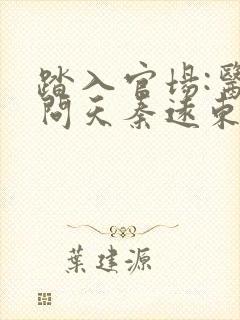 踏入官場:醫
問天秦遠東
葉建源